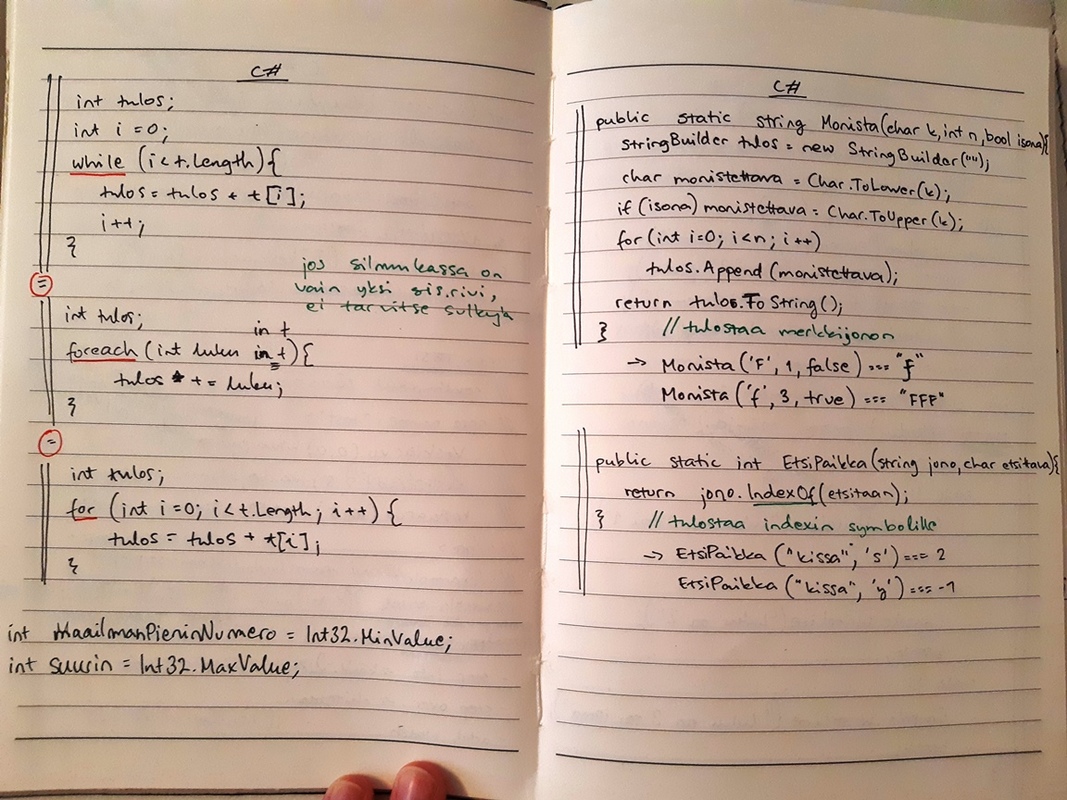 C#
int tulos;
int i = 0;
while (i < t.Length) {
tulos = tulos + t[i];
i++;
}
=
jos silmukassa on
vain yksi sis.rivi,
ei tarvitse sulkuja
int tulos;
in t
foreach (int luku in t) {
tulos += luku;
}
=
int tulos;
for (int i=0; i<t.Length; i++) {
tulos = tulos + t[i];
}
int MaailmanPieninNumero = Int32.MinValue;
int suurin = Int32.MaxValue;
C#
public static string Monista(char k, int n, bool isona){
StringBuilder tulos = new StringBuilder("");
char monistettava = Char.ToLower(k);
if (isona) monistettava = Char.ToUpper(k);
for (int i=0; i<n; i++)
tulos.Append (monistettava);
return tulos.ToString();
} // tulostaa merkkijonon
→ Monista ('F', 1, false) === "f"
Monista ('f', 3, true) === "FFF"
public static int EtsiPaikka (string jono, char etsitava){
return jono.IndexOf(etsitaan);
} // tulostaa indexin symbolille
→ EtsiPaikka ("kissa", 's') === 2
EtsiPaikka ("kissa", 'y') === -1